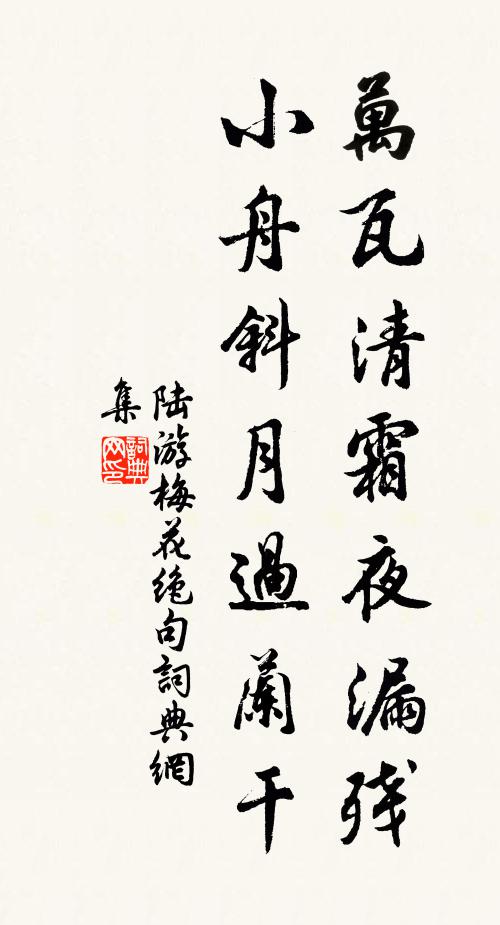 萬瓦清霜夜漏残
小舟斜月過蘭干
陆游梅花绝句詞典網
集
詞典网印